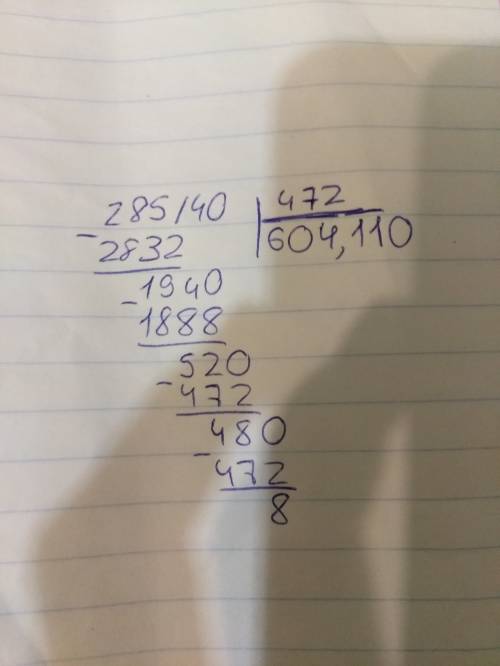 285140 472
- 2832 604,110
1940
- 1888
520
- 472
480
- 472
8